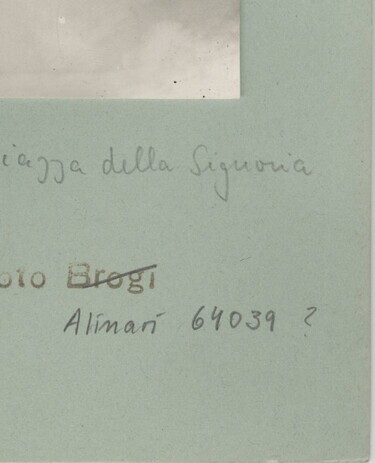 iazza della Signoria
oto Brogi
Alinari 64039 ?